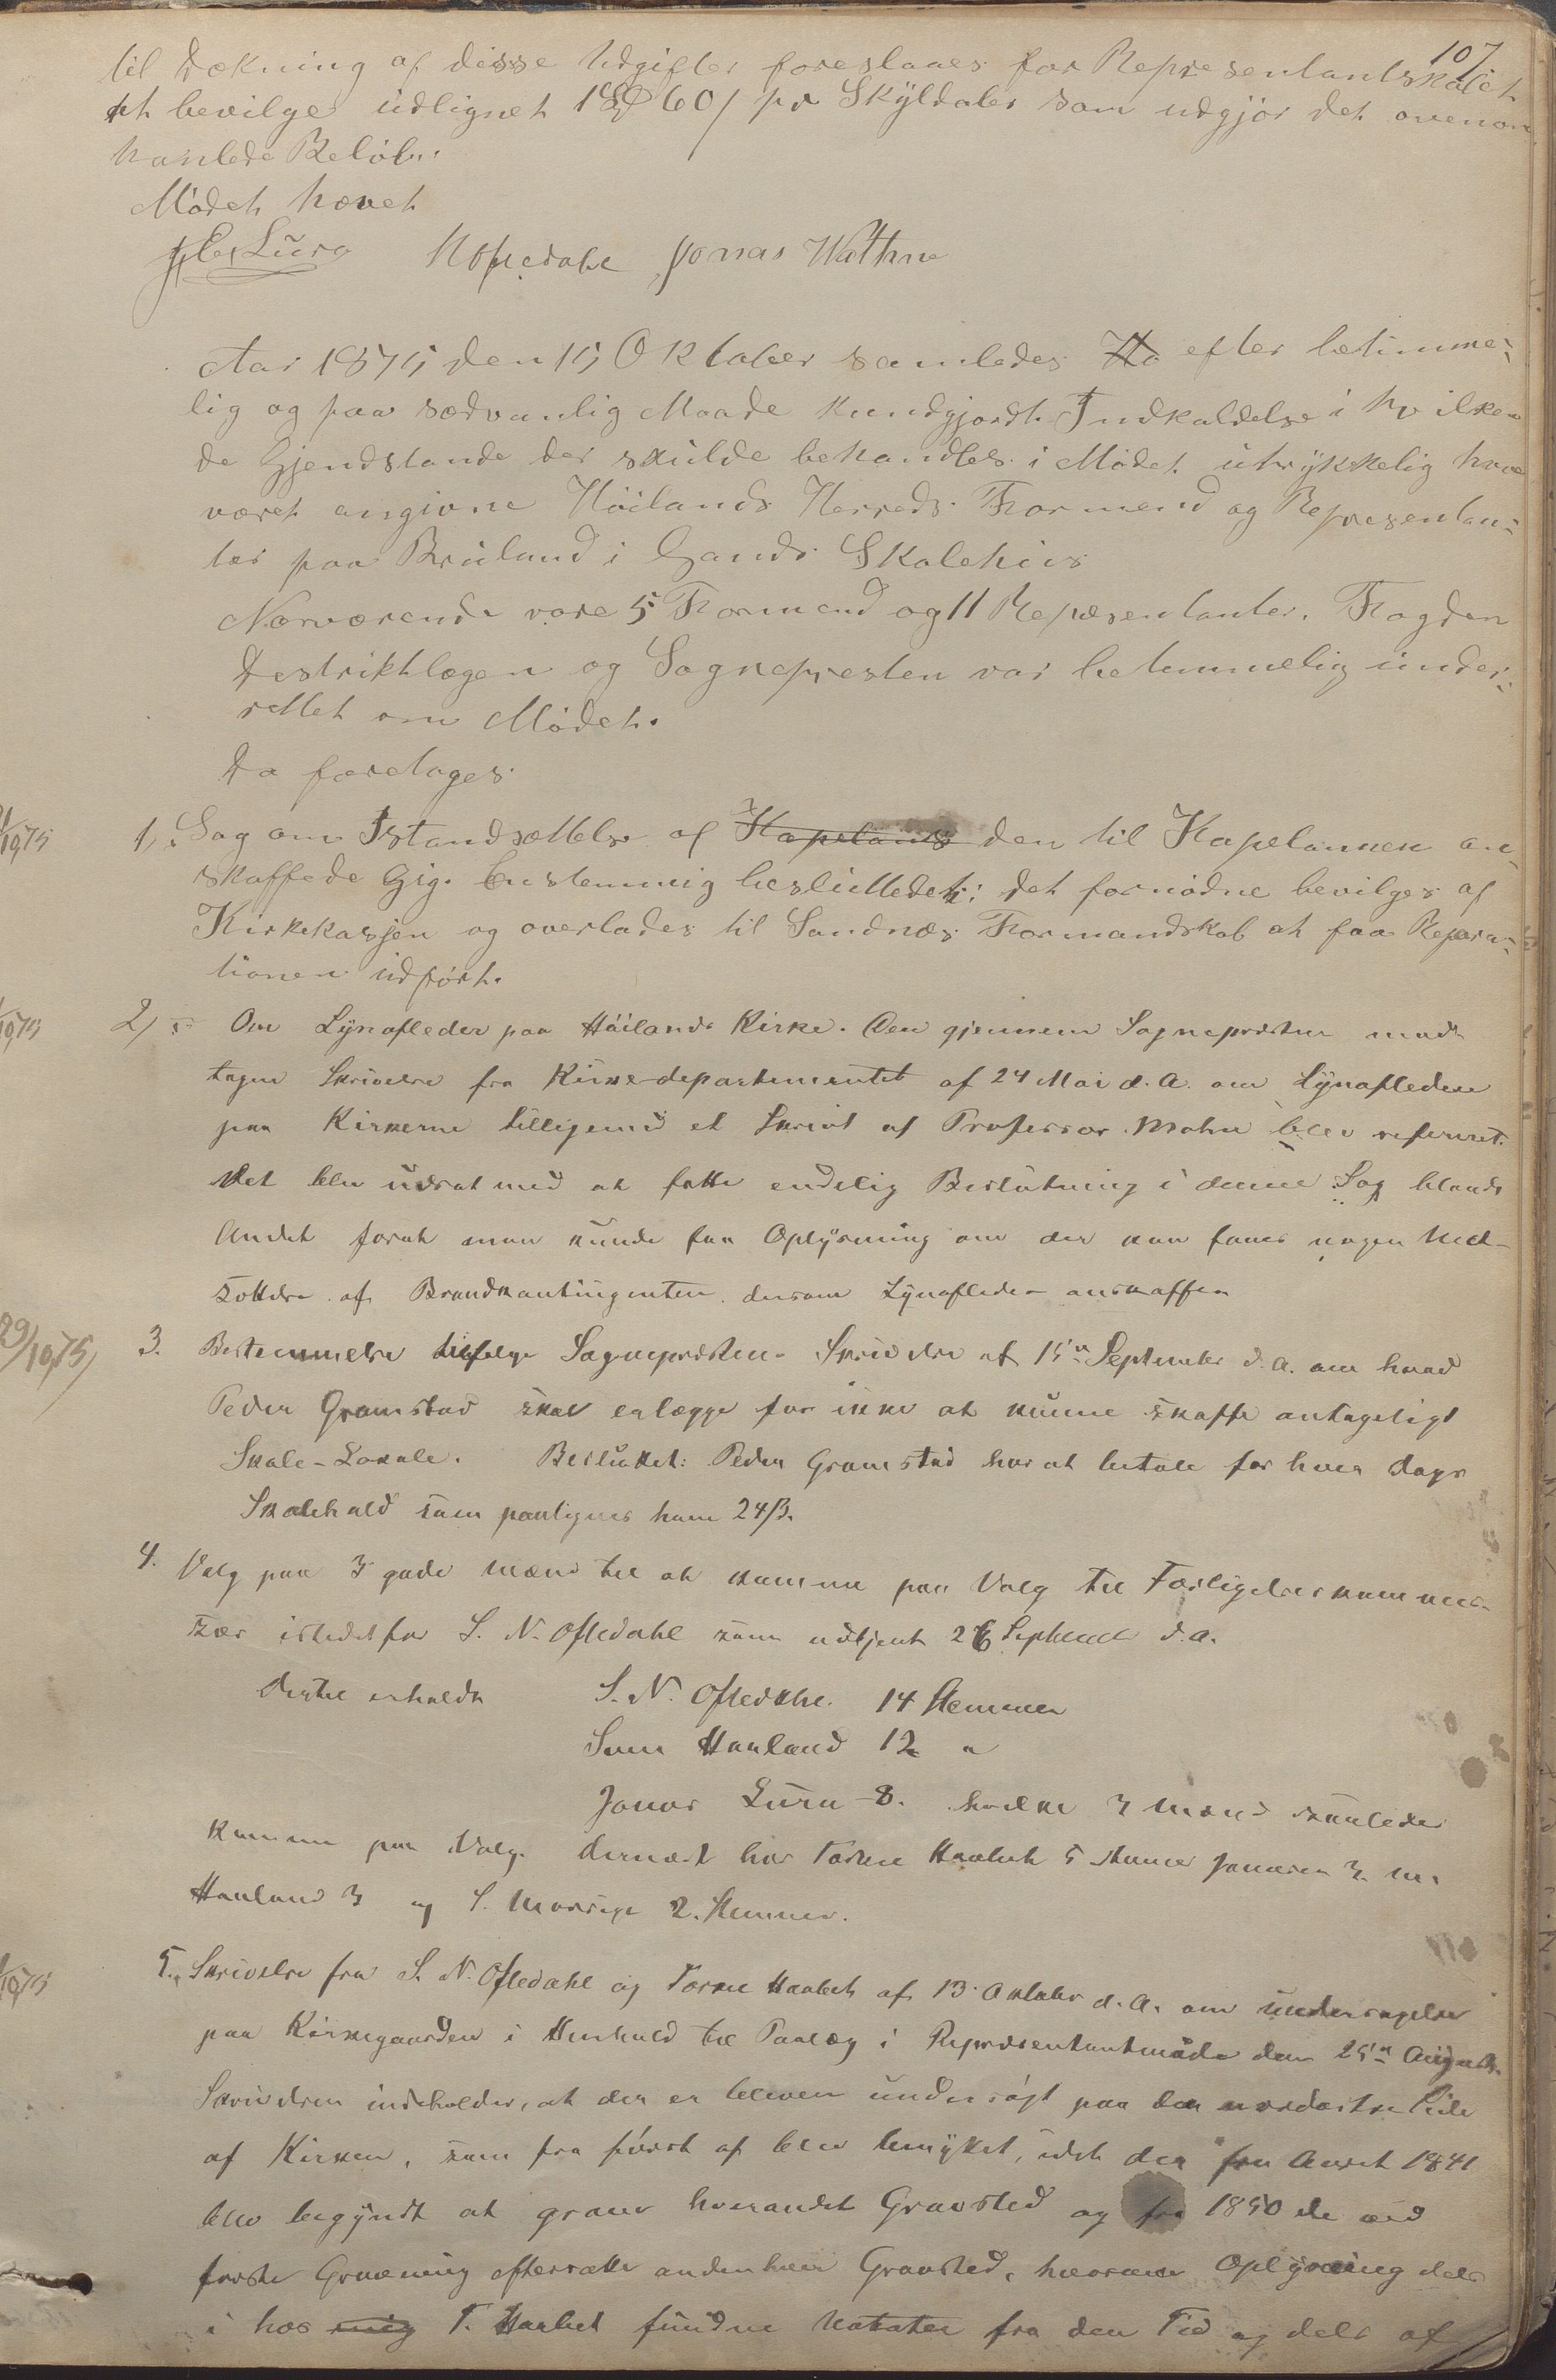 107
til Dækning af disse Udgifter foreslaaes for Representantskabet
at bevilge udlignet 1 60 pr Skyldaler som udgjør det ovenom
hanlede Beløb.
Mødet hævet
Lura Oftedahl Jonas Wathne
Aar 1875 den 15 Oktober samledes Ha efter betimme-
lig og paa sædvanlig Maade kundgjordt Indkaldelse i hvilken
de Gjendstande der skulde behandles i Mødet utrykkelig have
været angivne Høilands Herreds Formend og Representan-
ter paa Brüland i Gands Skolehus
Nærværende vare 5 Formend og 11 Repæsentanter. Fogden
Destriktlægen og Sognepresten var betimmelig under-
rettet om Mødet.
Da foretages
1) Sag om Istandsættelse af Kapelanens den til Kapelannen an-
skaffede Gig. Enstemmig besluttedet: det fornødne bevilges af
Kirkekassen og overlades til Sandnæs Formandskab at faa Repera-
tionen udført.
2) Om Lynafleder paa Høilands Kirke. Den gjennem Sognepræsten mod-
tagne Skrivelse fra Kirkedepartementet af 24 Mai d. A. om Lynafledere
paa Kirkerne tilligemed et Skrivt af Professor Mohn blev refereret.
Det blev udsat med at fatte endelig Beslutning i denne Sag blandt
Andet forat man kunde faa Oplysning om der kan faaes nogen Ned-
sættelse af Brandkontingenten dersom Lynafleder anskaffes
29/10 75
3. Bestemmelse tilfølge Sognepræstens Skrivelse af 15de September d. A. om hvad
Peder Gramstad skal erlægge for ikke at kunne skaffe antageligt
Skole-Lokale. Besluttet: Peder Gramstad har at betale for hver Dags
Skolehold som paalignes ham 24 β.
4. Valg paa 3 gode Mænd til at komme paa Valg til Forligelseskommis-
sær istedetfor S. N. Oftedahl som udtjent 26 September d. A.
Dertil erholdt S. N. Oftedahl. 14 Stemmer
Svend Hauland 12 "
Jonas Lura 8. hvilke 3 Mænd saaledes
komme paa Valg. Dernæst har Torkel Haabet 5 Stemmer 3
Hauland 3 og S. 2. Stemmer.
5. Skrivelse fra S. N. Oftedahl og Torkel Haabet af 13 Oktober d. A. om undersøgelse
paa Kirkegaarden i Henhold til Paalæg i Repræsentantmøde den 25de August.
Skrivelsen indeholder, at der er bleven undersøgt paa den nordøstre Side
af Kirken, som fra først af blev benyttet, idet der fra Aaret 1841
blev begyndt at grave hverandet Gravsted og fra 1850 de ved
første Gravning efterladte andenhver Gravsted, hvorom Oplysning dels
i hos mig T. Haabet fundne Notater fra den Tid og dels af